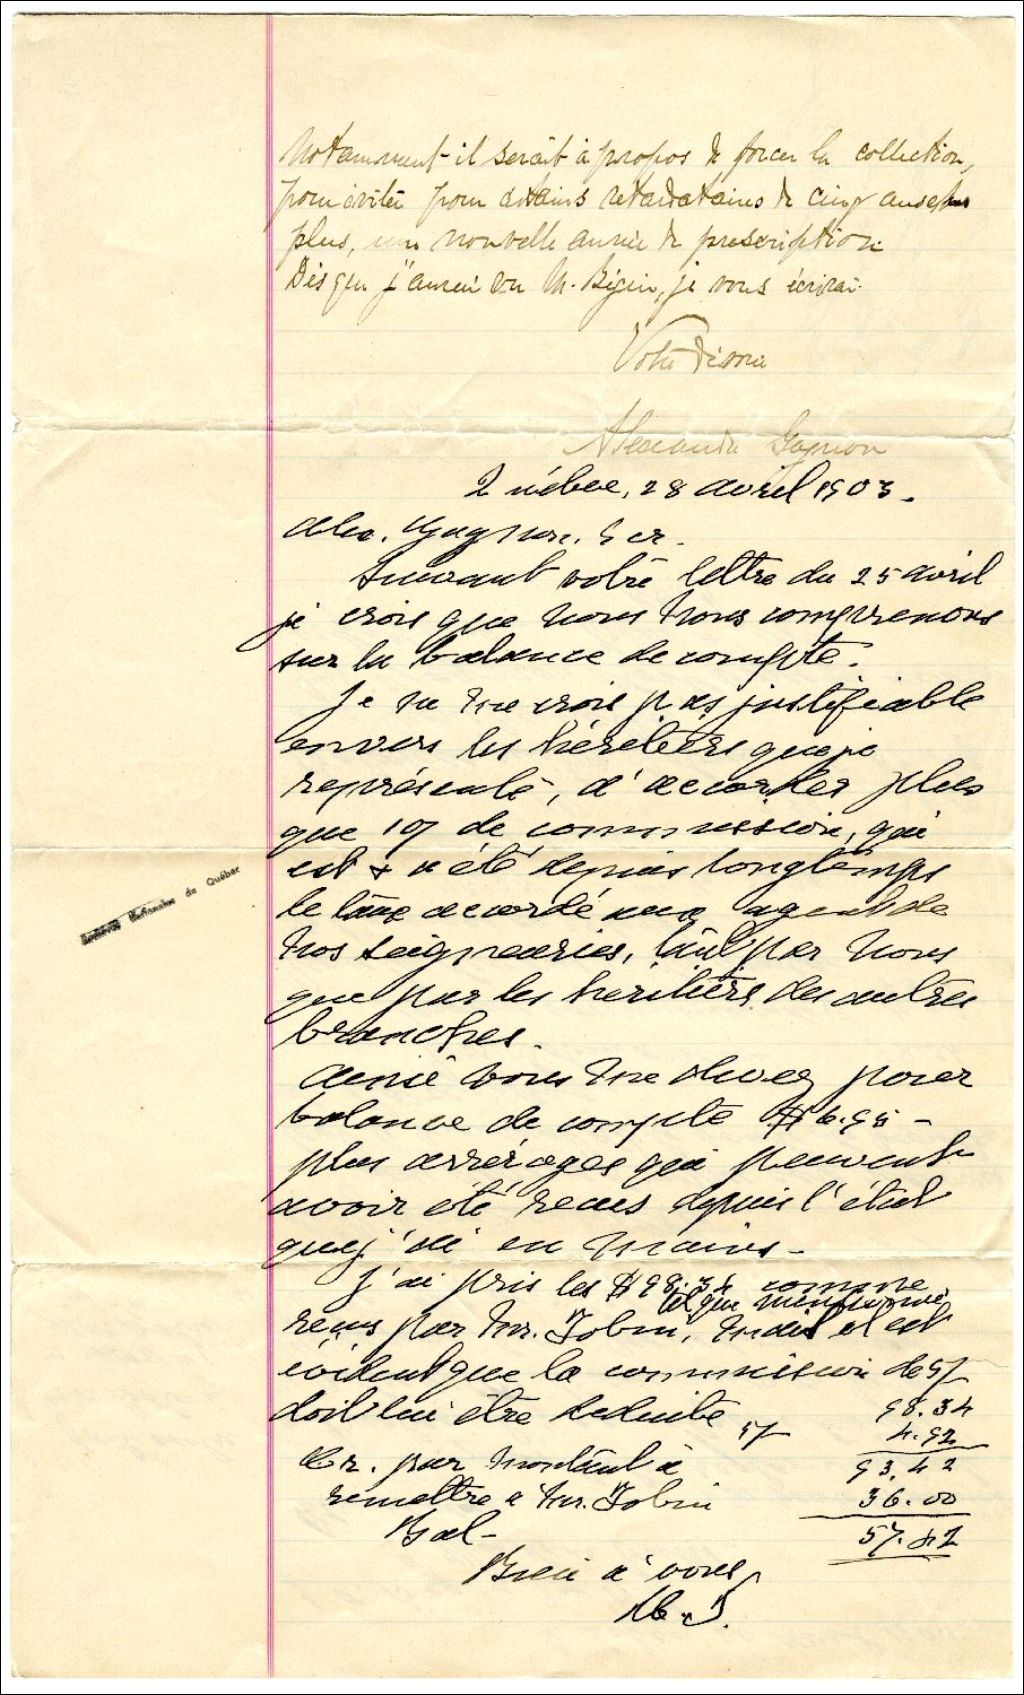 Notamment il serait à propos de forcer la collection,
pour éviter pour certains retardataires de cinq ans et
plus, une nouvelle année de prescription
Dès que j'aurai vu M. Bégin, je vous écrirai.
Votre
Alexandre Gagnon
Québec, 28 avril 1903.
Alex. Gagnon. Ecr.
Suivant votre lettre du 25 avril
je crois que nous nous comprenons
sur la balance de compte.
Je ne me crois pas justifiable
envers les héritiers que je
représente, d'accorder plus
que de commission, qui
est & a été depuis longtemps
le taux accordé aux agents de
nos seigneuries, tant par nous
que par les héritiers des autres
branches.
Ainsi vous me devez pour
balance de compte $16.95 -
plus arrérages qui peuvent
avoir été reçus depuis l'état
que j'ai en mains -
J'ai pris les $98.34 comme
tel que mentionné
reçus par Mr. Tobin, mais il est
évident que la commission de 5%
doit lui être déduite 5% 98.34
4.92
Cr. par montant à 93.42
remettre a Mr. Tobin 36.00
Bal- 57.42
Bien à vous